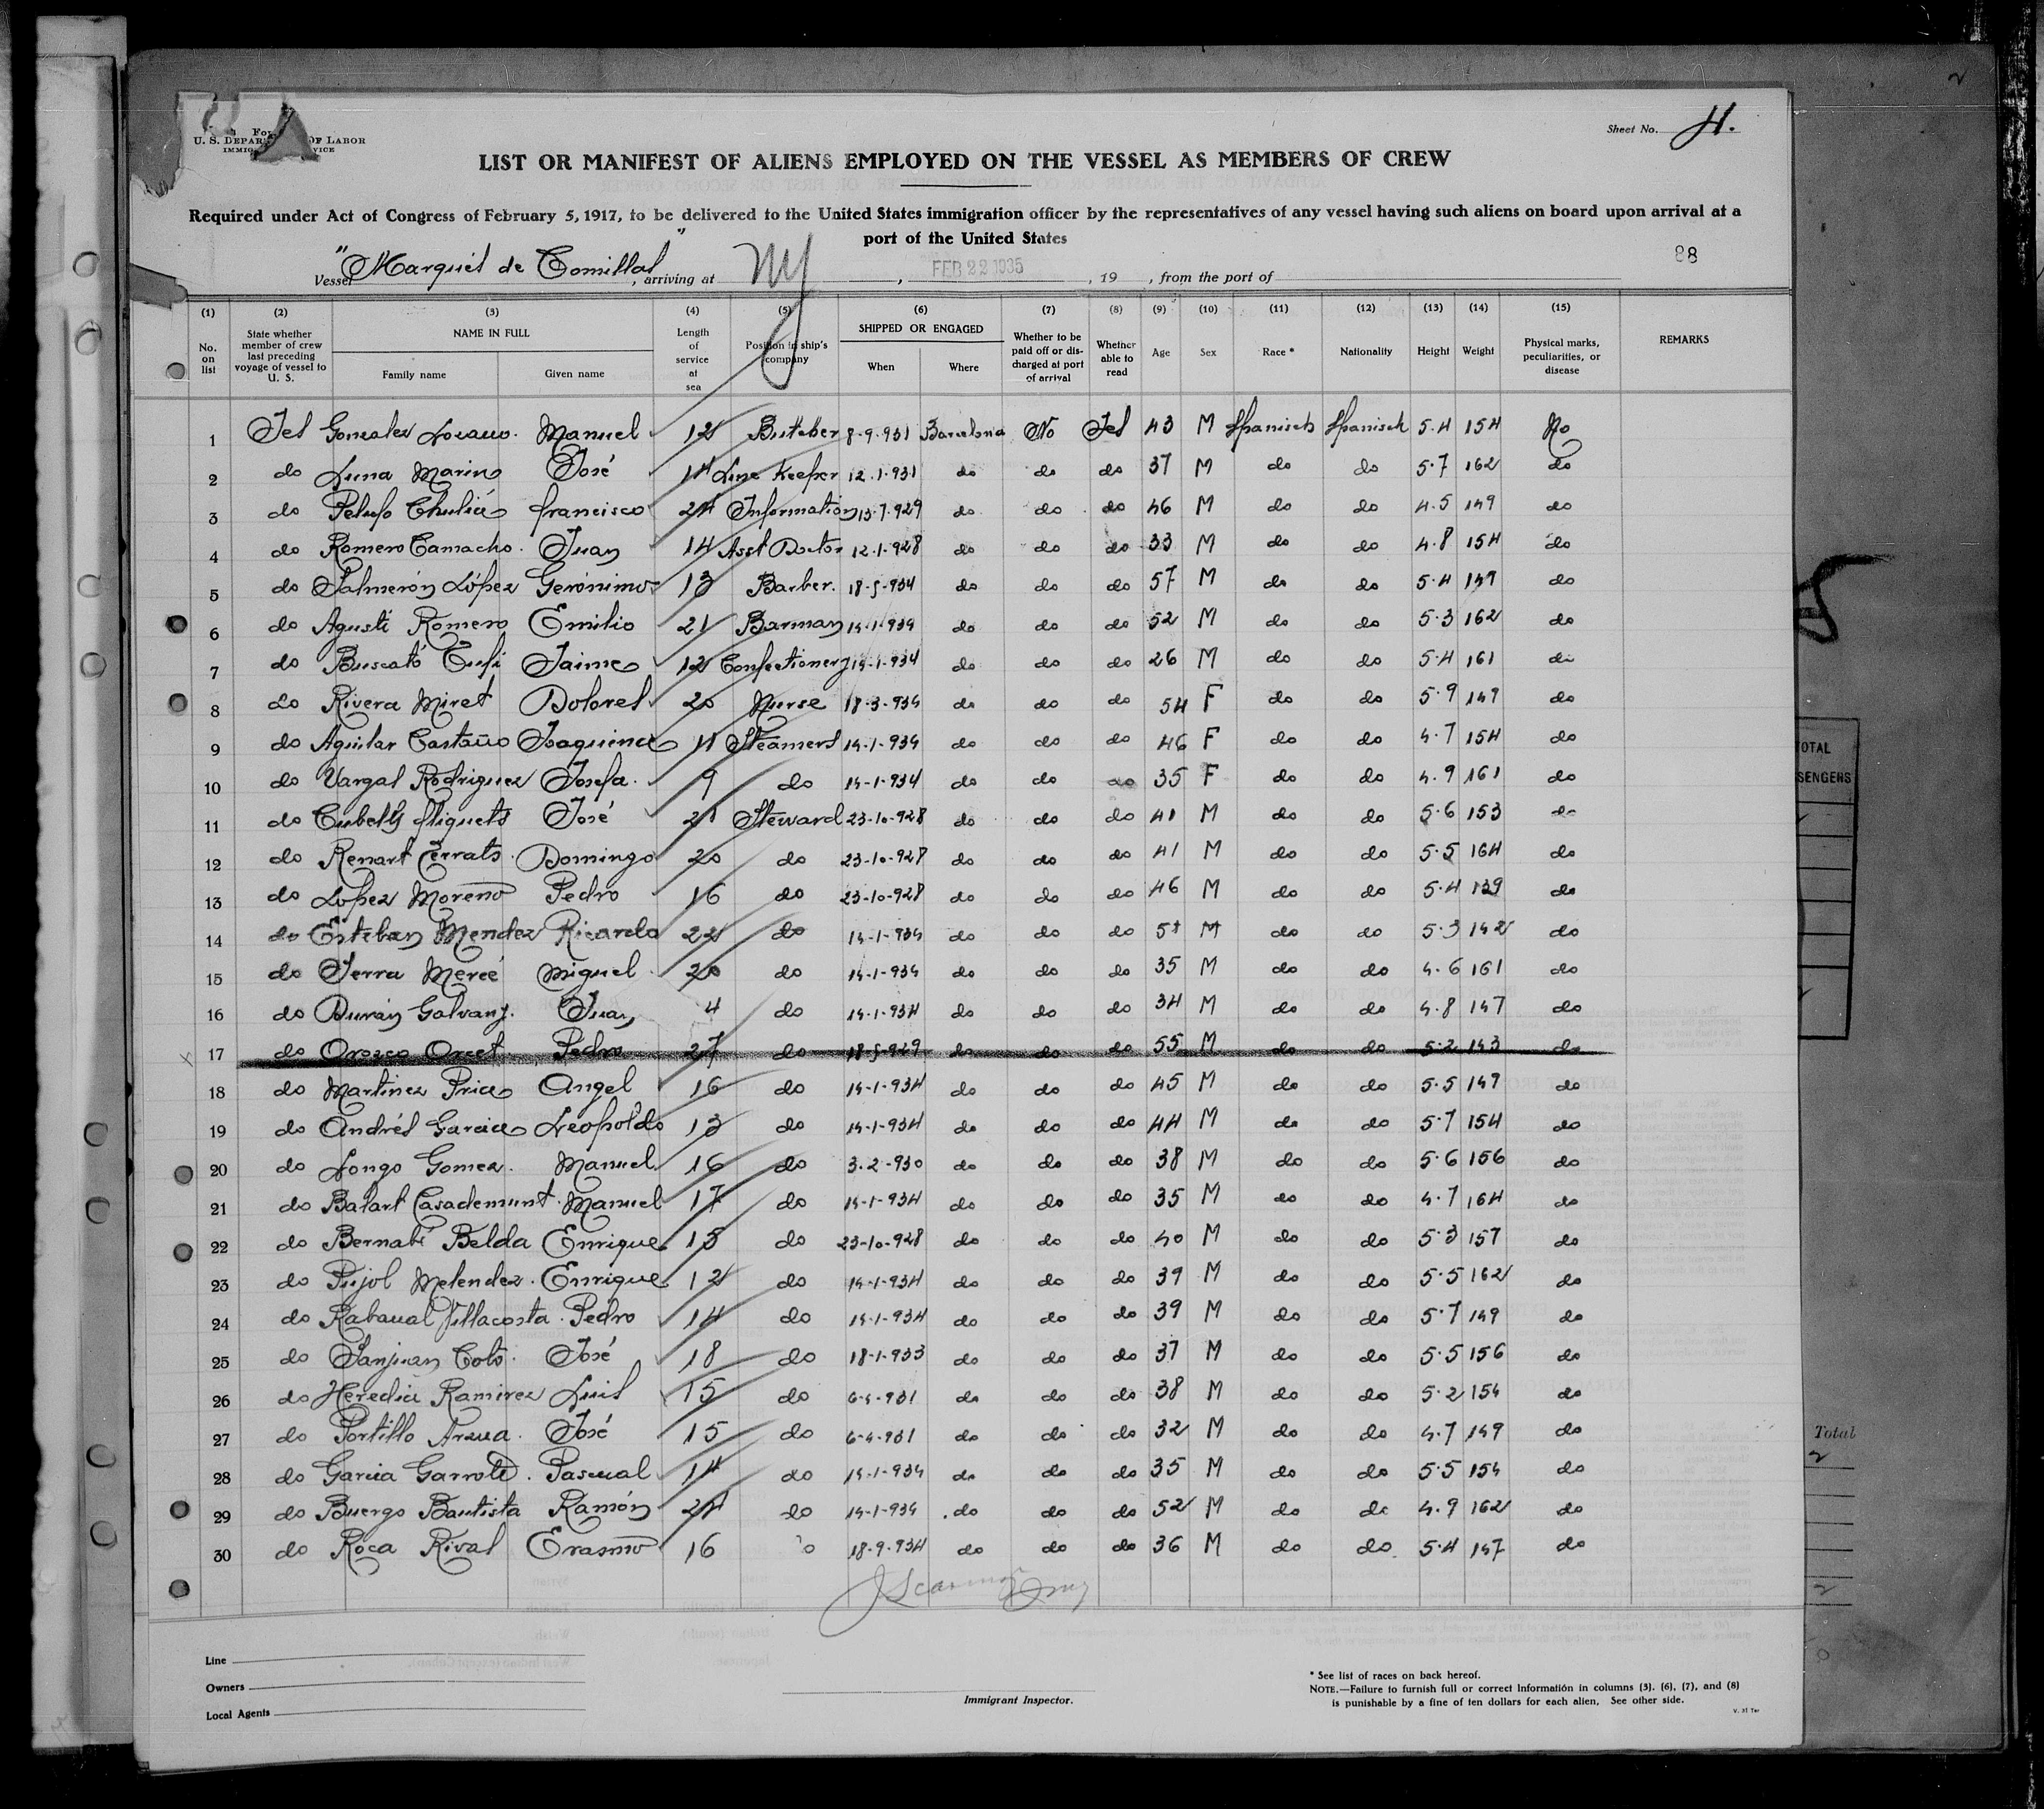 U. S. DEPAR OF LABOR
Sheet No. 4.
LIST OR MANIFEST OF ALIENS EMPLOYED ON THE VESSEL AS MEMBERS OF CREW
Required under Act of Congress of February 5, 1917, to be delivered to the United States immigration officer by the representatives of any vessel having such aliens on board upon arrival at a
port of the United States
88
Vessel "Marqués de Comillas", arriving at NY, FEB 22 1935, 19 , from the port of
(1) (2) (3) (4) (5) (6) (7) (8) (9) (10) (11) (12) (13) (14) (15)
No. on list State whether member of crew last preceding voyage of vessel to U. S. NAME IN FULL Family name Given name Length of service at sea Position in ship's company SHIPPED OR ENGAGED When Where Whether to be paid off or discharged at port of arrival Whether able to read Age Sex Race * Nationality Height Weight Physical marks, peculiarities, or disease REMARKS
1 Yes Gonzalez Lozano. Manuel 12 Butcher 8-9-931 Barcelona No Yes 43 M Spanisch Spanisch 5.4 154 No
2 do Luna Marin José 14 Line Keeper 12-1-931 do do do 37 M do do 5.7 162 do
3 do Pelufo Chuliá francisco 24 Information 13-7-929 do do do 46 M do do 4.5 149 do
4 do Romero Camacho. Juan 14 Asst Doctor 12-1-928 do do do 33 M do do 4.8 154 do
5 do Salmerón López Gerónimo 13 Barber. 18-5-934 do do do 57 M do do 5.4 149 do
6 do Agusti Romero Emilio 21 Barman 14-1-934 do do do 52 M do do 5.3 162 do
7 do Buscató Cufi Jaime 12 Confectionery 14-1-934 do do do 26 M do do 5.4 161 do
8 do Rivera Miret Dolores 20 Nurse 18-3-934 do do do 54 F do do 5.9 149 do
9 do Aguilar Castaño Joaquina 11 Steamers 14-1-934 do do do 46 F do do 4.7 154 do
10 do Vargas Rodriguez Josefa. 9 do 14-1-934 do do do 35 F do do 4.9 161 do
11 do Cubells José 21 Steward 23-10-928 do do do 41 M do do 5.6 153 do
12 do Renart Cerrats. Domingo 20 do 23-10-928 do do do 41 M do do 5.5 164 do
13 do López Moreno Pedro 16 do 23-10-928 do do do 46 M do do 5.4 139 do
14 do Esteban Mendez Ricardo 22 do 14-1-934 do do do M do do 5.3 142 do
15 do Serra Mercé Miguel 20 do 14-1-934 do do do 35 M do do 4.6 161 do
16 do Durán Galvany. Juan 4 do 14-1-934 do do do 34 M do do 4.8 147 do
17 do Orozco Orcet Pedro 27 do 18-5-929 do do do 55 M do do 5.2 143 do
18 do Martinez Pria Angel 16 do 14-1-934 do do do 45 M do do 5.5 149 do
19 do Andrés Garcia Leopoldo 13 do 14-1-934 do do do 44 M do do 5.7 154 do
20 do Longo Gomez. Manuel 16 do 3-2-930 do do do 38 M do do 5.6 156 do
21 do Balart Casademunt. Manuel 17 do 14-1-934 do do do 35 M do do 4.7 164 do
22 do Bernabé Belda Enrique 15 do 23-10-928 do do do 40 M do do 5.3 157 do
23 do Pujol Melendez. Enrique 12 do 14-1-934 do do do 39 M do do 5.5 162 do
24 do Rabanal Villacosta. Pedro 14 do 14-1-934 do do do 39 M do do 5.7 149 do
25 do Sanjuan Coto. José 18 do 18-1-933 do do do 37 M do do 5.5 156 do
26 do Heredia Ramirez Luis 15 do 6-4-931 do do do 38 M do do 5.2 154 do
27 do Portillo Arzua. José 15 do 6-4-931 do do do 32 M do do 4.7 149 do
28 do Garcia Garrote. Pascual 14 do 14-1-934 do do do 35 M do do 5.5 154 do
29 do Buergo Bautista Ramón 24 do 14-1-934 do do do 52 M do do 4.9 162 do
30 do Roca Rival Erasmo 16 do 18-9-934 do do do 36 M do do 5.4 147 do
Line
Owners
Local Agents
Immigrant Inspector.
* See list of races on back hereof.
NOTE.—Failure to furnish full or correct information in columns (3), (6), (7), and (8)
is punishable by a fine of ten dollars for each alien. See other side.
TOTAL
SENGERS
Total